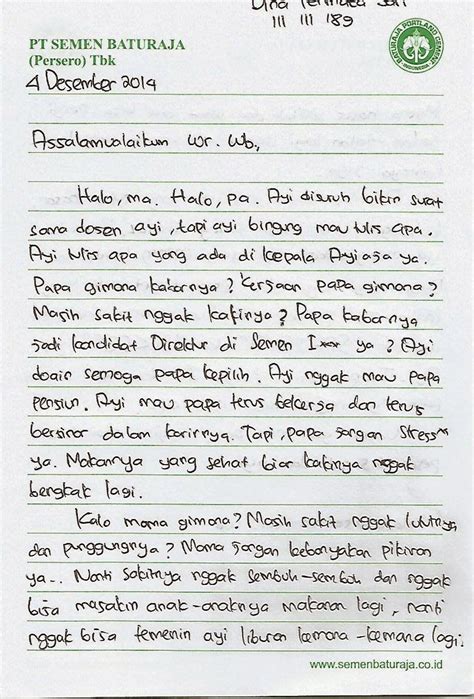 PT SEMEN BATURAJA
(Persero) Tbk
BATURAJA PORTLAND CEMENT
INDONESIA
111 111 189
4 Desember 2014
Assalamualaikum Wr. Wb.,
Halo, ma. Halo, pa. Ayi disuruh bikin surat
sama dosen ayi, tapi ayi bingung mau tulis apa.
Ayi tulis apa yang ada di kepala Ayi aja ya.
Papa gimana kabarnya? Kerjaan papa gimana?
Masih sakit nggak kakinya? Papa kabarnya
jadi kandidat Direktur di Semen I*** ya? Ayi
doain semoga papa kepilih. Ayi nggak mau papa
pensiun. Ayi mau papa terus bekerja dan terus
bersinar dalam karirnya. Tapi, papa jangan stress^^
ya. Makannya yang sehat biar kakinya nggak
bengkak lagi.
Kalo mama gimana? Masih sakit nggak lututnya
dan punggungnya? Mama jangan kebanyakan pikiran
ya.. Nanti sakitnya nggak sembuh-sembuh dan nggak
bisa masakin anak-anaknya makanan lagi, nanti
nggak bisa temenin ayi liburan kemana-kemana lagi.
www.semenbaturaja.co.id